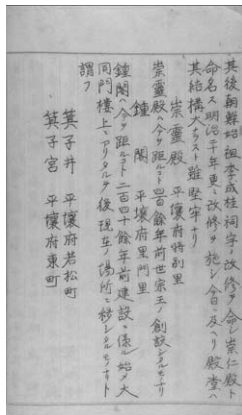 其後朝鮮始祖李成桂祠宇ノ改修ヲ命シ崇仁殿ト
命名ス明治十年更ニ改修ヲ施シ今日ニ及ヘリ殿堂ハ
其結構大ナラスト雖堅牢ナリ
崇靈殿 平壤府特別里
崇靈殿ハ今ヲ距ルコト四百餘年前世宗王ノ創設シタルモノナリ
鐘閣 平壤府里門里
鐘閣ハ今ヲ距ルコト二百四十餘年前建設ニ係ル始メ大
同門樓上ニアリタルヲ後現在ノ場所ニ移シタルモノナリト
謂フ
箕子井 平壤府若松町
箕子宮 平壤府東町